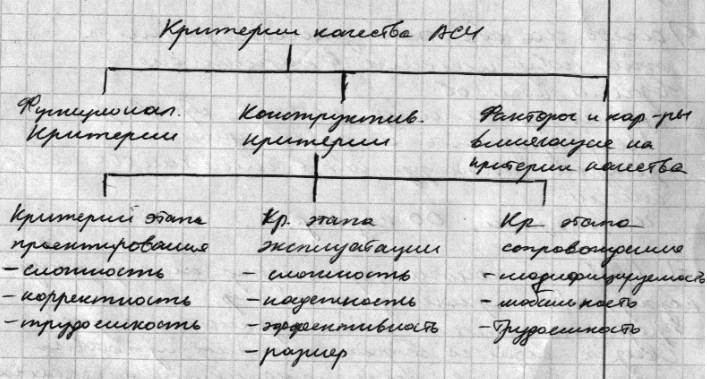 Критерии качества АСУ
Функционал.
Критерии
Конструктив.
критерии
Факторы и хар-ры
влияющие на
критерии качества
Критерий этапа
проектирования
- сложность
- корректность
- трудоемкость
Кр. этапа
эксплуатации
- сложность
- надежность
- эффективность
- размер
Кр. этапа
сопровождение
- модифицируемость
- мобильность
- Трудоемкость